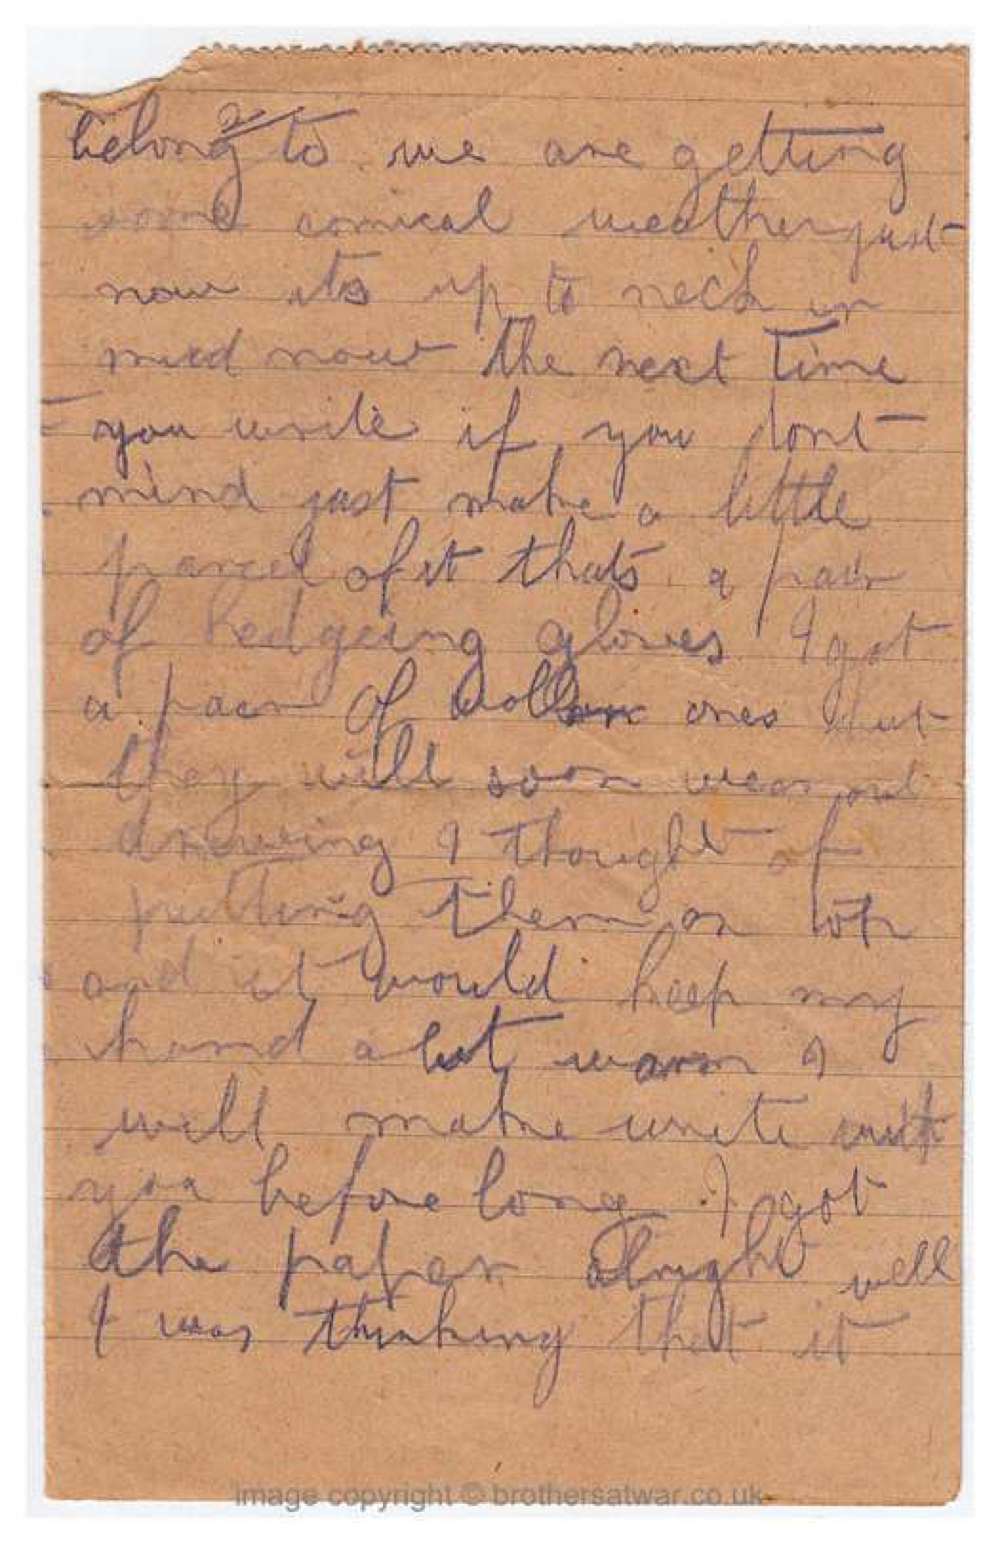 2
belong to we are getting
some comical weather just
now its up to neck in
mud now the next time
you write if you dont
mind just make a little
parcel of it thats a pair
of hedgeing gloves I got
a pair of wollen ones but
they will soon wear out
driveing I thought of
putting them on top
and it would keep my
hand a bit warm I
will make write with
you before long I got
the paper alright well
I was thinking that it
image copyright © brothersatwar.co.uk